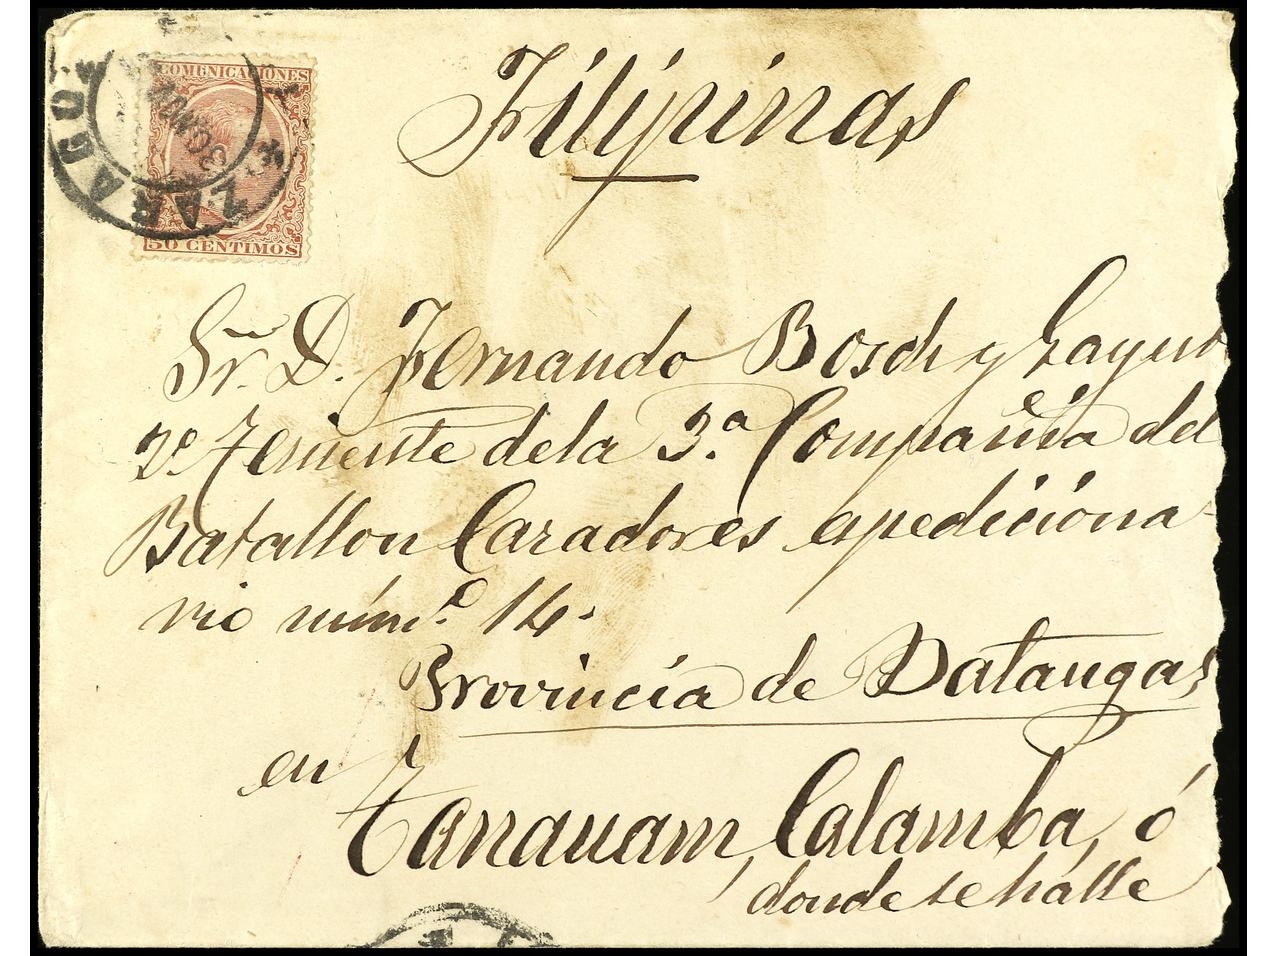 Filipinas
COMUNICACIONES
50 CENTIMOS
ZARAGOZA
30 NOV
Sr. D. Fernando Bosch y Gayub
2º Teniente de la 3ª Compañia del
Batallon Cazadores expediciona-
rio númº 14.
Provincia de Batangas
en Tanauam, Calamba, ó
donde se halle